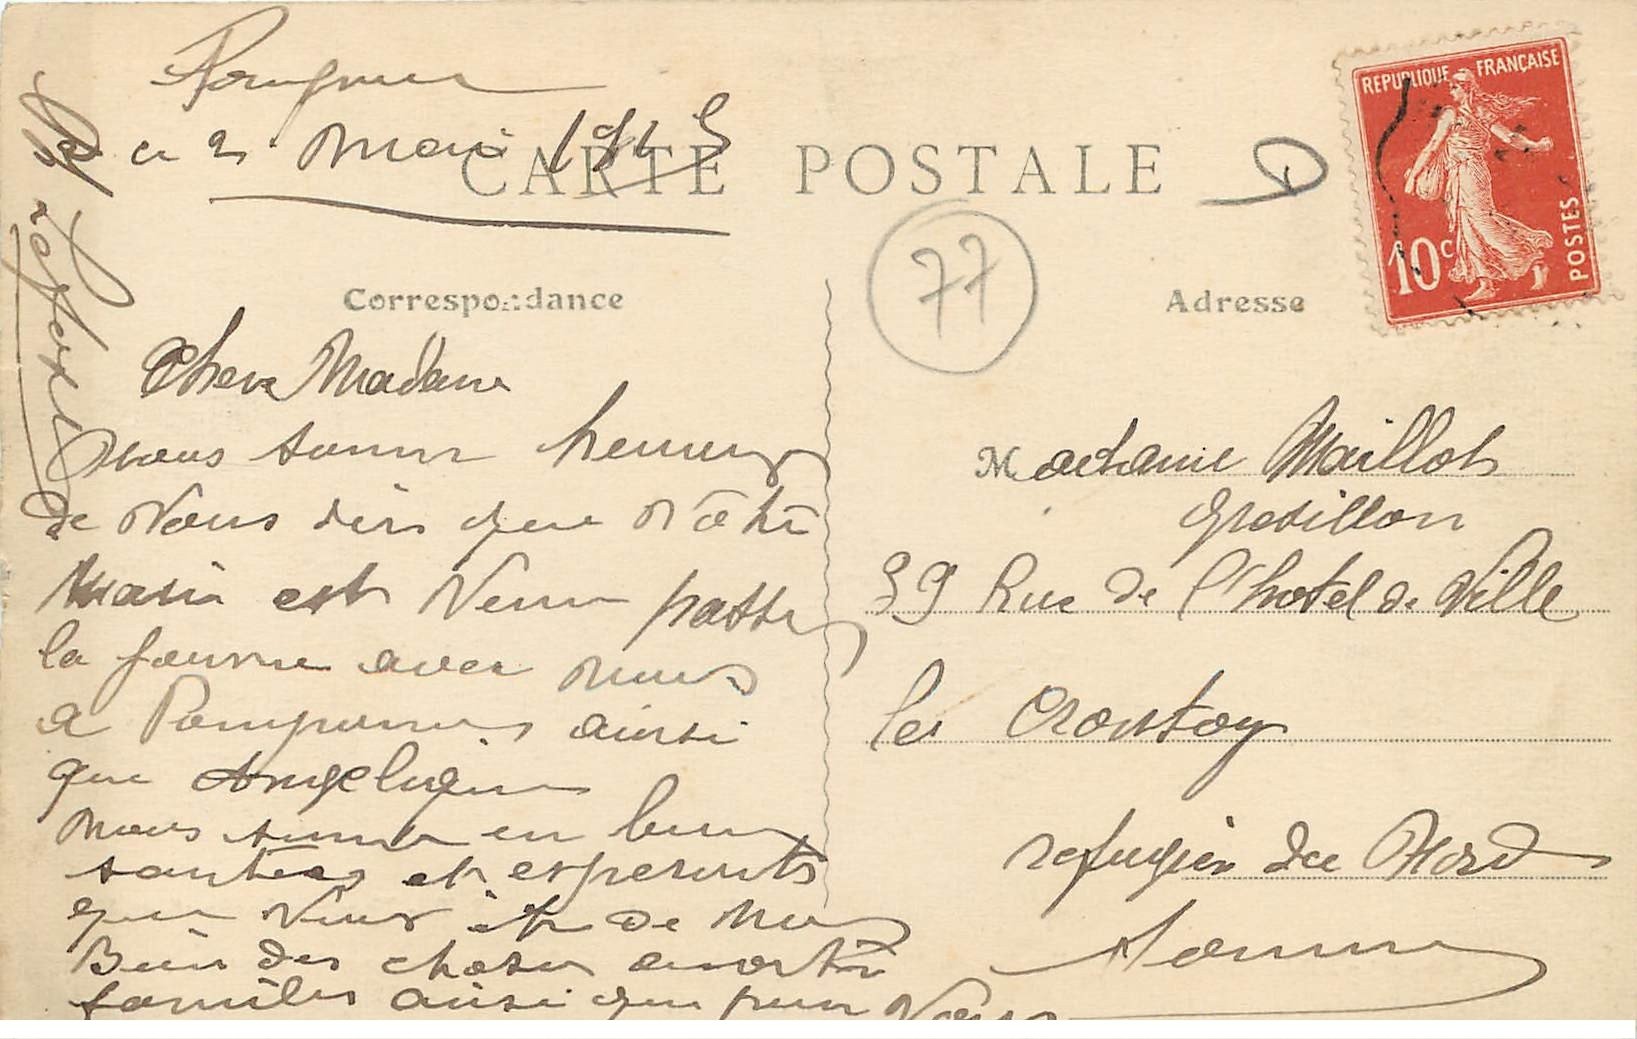 ce 2 Mai 1915
CARTE POSTALE
REPUBLIQUE FRANÇAISE
10c
POSTES
77
Correspondance
Adresse
Chere Madame
nous somme heureux
de Vous dire que Votre
Mari est Venu passer
la journee avec nous
a Pomponne ainsi
que Angelique
nous somme en bonne
santée et esperont
que Vous ete de meme
Bien des chose a votre
famille ainsi que pour Vous
Lefevre
Madame Maillot
Gresillon
39 Rue de l'hotel de Ville
le Crotoy
refugier du Nord
Somme